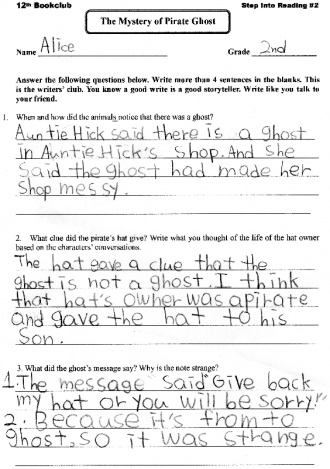 12th Bookclub Step Into Reading #2
The Mystery of Pirate Ghost
Name Alice Grade 2nd
Answer the following questions below. Write more than 4 sentences in the blanks. This
is the writers' club. You know a good write is a good storyteller. Write like you talk to
your friend.
1. When and how did the animals notice that there was a ghost?
Auntie Hick said there is a ghost
in Auntie Hick's shop. And she
said the ghost had made her
shop messy.
2. What clue did the pirate's hat give? Write what you thought of the life of the hat owner
based on the characters' conversations.
The hat gave a clue that the
ghost is not a ghost. I think
that hat's owner was a pirate
and gave the hat to his
son.
3. What did the ghost's message say? Why is the note strange?
1. The message said "Give back
my hat or you will be sorry!"
2. Because it's from to
ghost, so it was strange.